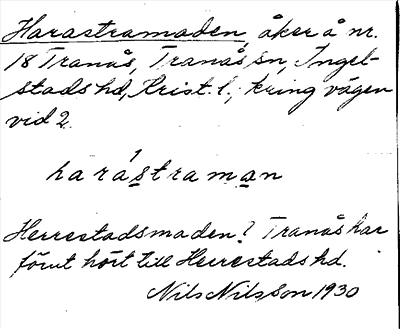 Harastramaden, åker å nr.
18 Tranås, Tranås sn, Ingel-
stads hd, Krist. l., kring vägen
vid 2.
harástraman
Herrestadsmaden? Tranås har
förut hört till Herrestads hd.
Nils Nilsson 1930